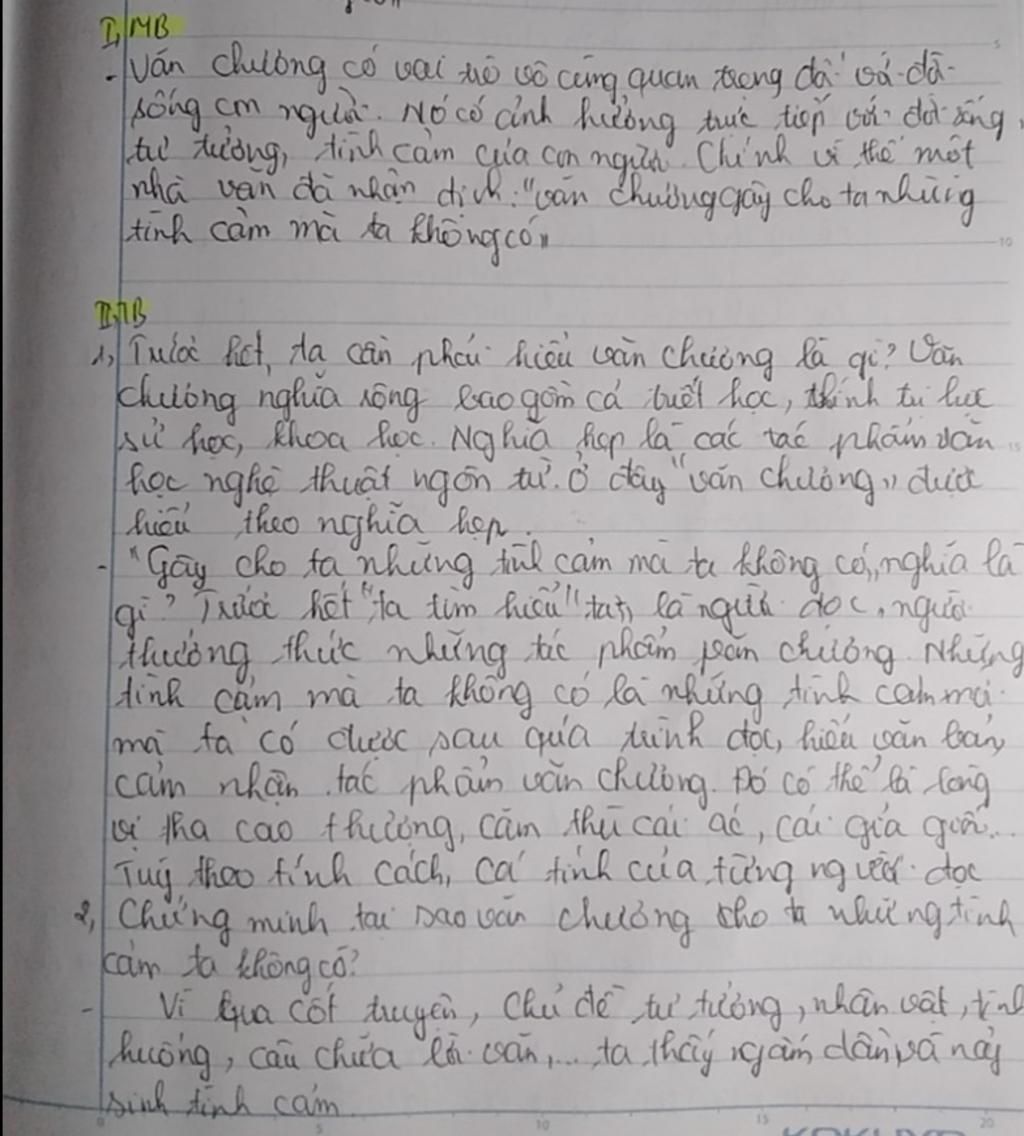 I, MB
- Văn chương có vai trò vô cùng quan trọng đối với đời
sống con người. Nó có ảnh hưởng trực tiếp với đời sống,
tư tưởng, tình cảm của con người. Chính vì thế một
nhà văn đã nhận định: "văn chương gây cho ta những
tình cảm mà ta không có"
II, TB
1, Trước hết, ta cần phải hiểu văn chương là gì? Văn
chương nghĩa rộng bao gồm cả triết học, chính trị học
sử học, khoa học. Nghĩa hẹp là các tác phẩm văn
học nghệ thuật ngôn từ. Ở đây "văn chương" được
hiểu theo nghĩa hẹp.
- "Gây cho ta những tình cảm mà ta không có" nghĩa là
gì? Trước hết "ta tìm hiểu" "ta" là người đọc, người
thưởng thức những tác phẩm văn chương. Những
tình cảm mà ta không có là những tình cảm mới
mà ta có được sau quá trình đọc, hiểu văn bản,
cảm nhận tác phẩm văn chương. Đó có thể là lòng
vị tha cao thượng, căm thù cái ác, cái giả dối...
Tuỳ theo tính cách, cá tính của từng người đọc
2, Chứng minh tại sao văn chương cho ta những tình
cảm ta không có?
- Vì qua cốt truyện, chủ đề tư tưởng, nhân vật, tình
huống, câu chữ lời văn,... ta thấy ngấm dần và nảy
sinh tình cảm.